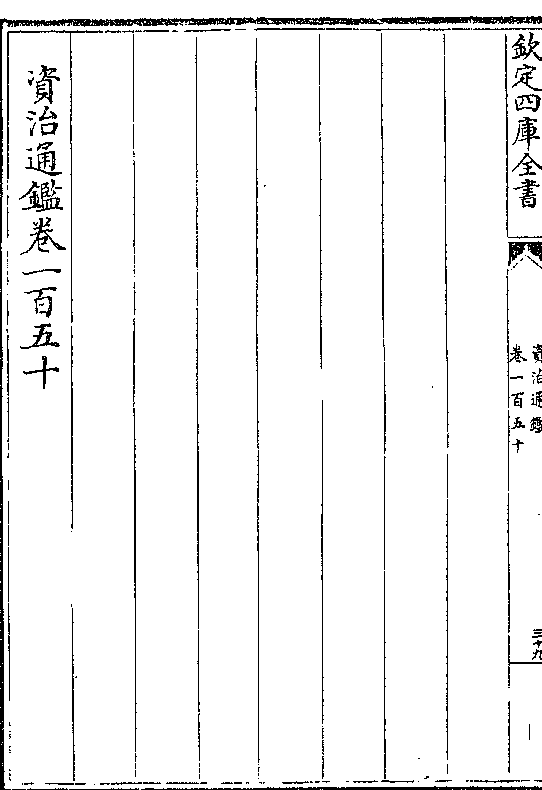 欽定四庫全書
資治通鑑
卷一百五十
三十九
資治通鑑卷一百五十